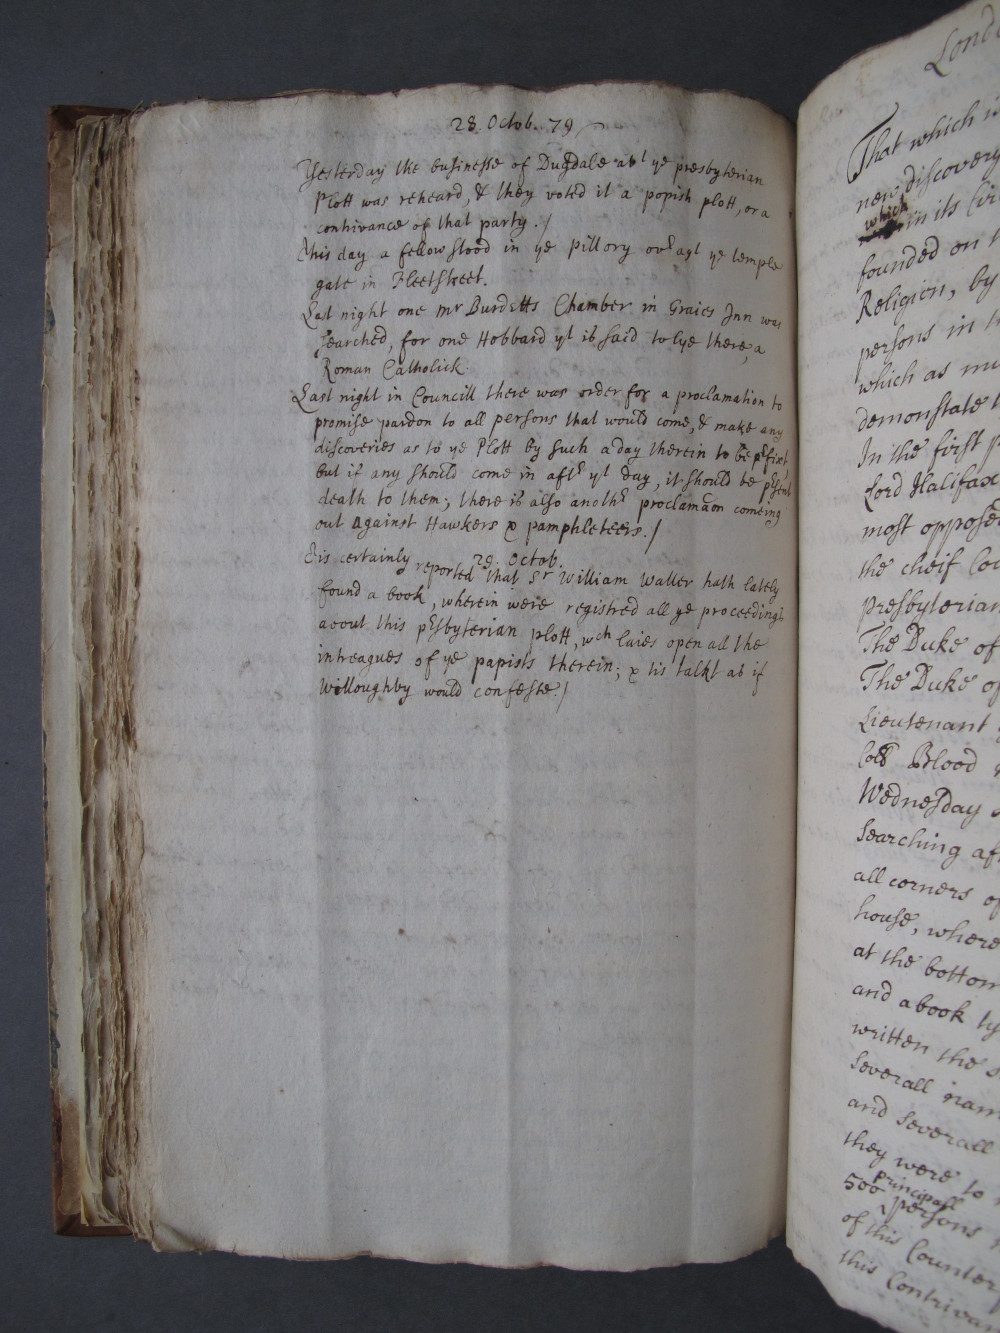 28. Octob. 79
Yesterday the businesse of Dugdale abt ye presbyterian
Plott was reheard, & they voted it a popish plott, or a
contrivance of that party./
This day a fellow stood in ye Pillory ovr agt ye temple
gate in Fleetstreet.
Last night one mr Burdetts Chamber in Graies Inn was
searched, for one Hobbard yt is said to lye there, a
Roman Catholick.
Last night in Councill there was order for a proclamation to
promise pardon to all persons that would come, & make any
discoveries as to ye Plott by such a day therein to be prfixt
but if any should come in aftr yt day, it should be prsent
death to them; there is also anothr proclamaon comeing
out against Hawkers & pamphleteers./
29. Octob.
Tis certainly reported that Sr William Waller hath lately
found a book, wherein were registred all ye proceedings
about this prsbyterian plott, wch laies open all the
intreagues of ye papists therein; & tis talkt as if
Willoughby would confesse./
London
That which
new discovery
which
in its
founded on
Religion, by
persons in
which as
demonstate
In the first
Lord Halifax
most opposed
the cheif
presbyterian
The Duke of
The Duke of
Lieutenant
Coll Blood
Wednesday
Searching
all corners of
house, where
at the bottom
and a book
written the
severall
and severall
they were to
principall
500 persons
of this Counter
this Contrivan